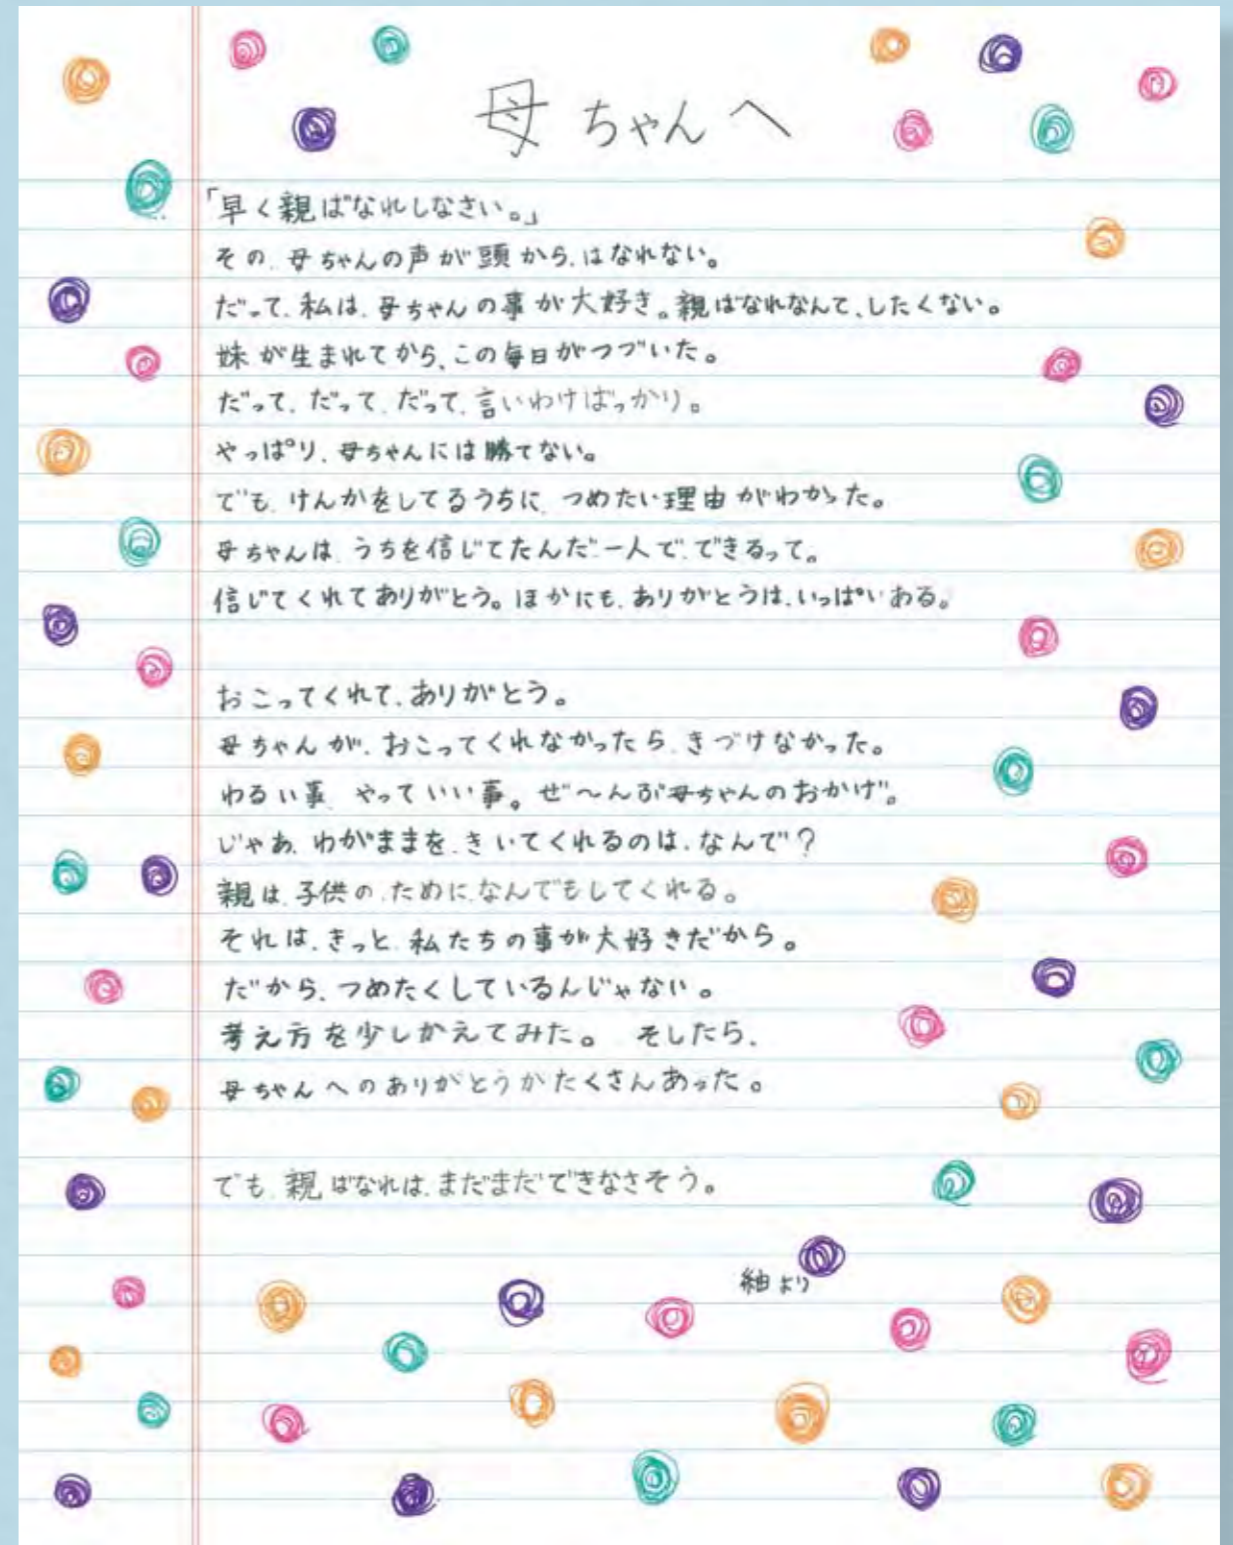 母ちゃんへ
「早く親ばなれしなさい。」
その、母ちゃんの声が頭から、はなれない。
だって、私は、母ちゃんの事が大好き。親ばなれなんて、したくない。
妹が生まれてから、この毎日がつづいた。
だって、だって、だって、言いわけばっかり。
やっぱり、母ちゃんには勝てない。
でも、けんかをしてるうちに、つめたい理由がわかった。
母ちゃんは、うちを信じてたんだ。一人で、できるって。
信じてくれてありがとう。ほかにも、ありがとうは、いっぱいある。
おこってくれて、ありがとう。
母ちゃんが、おこってくれなかったら、きづけなかった。
わるい事、やっていい事。ぜ〜んぶ母ちゃんのおかげ。
じゃあ、わがままを、きいてくれるのは、なんで?
親は、子供の、ために、なんでもしてくれる。
それは、きっと、私たちの事が大好きだから。
だから、つめたくしているんじゃない。
考え方を少しかえてみた。 そしたら、
母ちゃんへのありがとうがたくさんあった。
でも、親ばなれは、まだまだできなさそう。
紬より